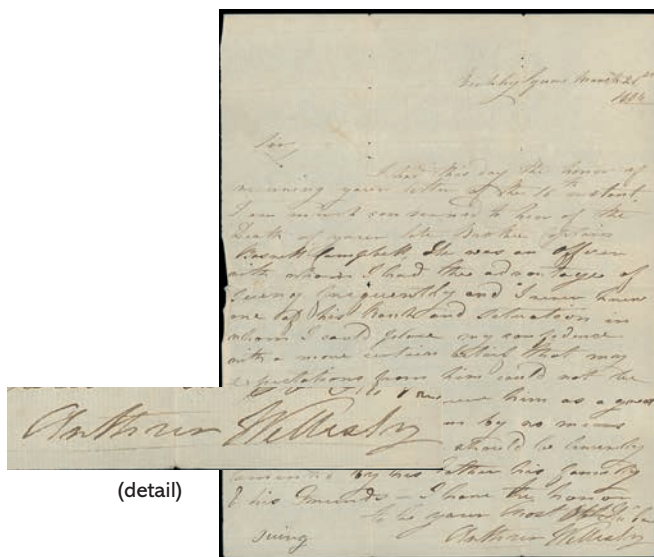 Berkeley Square March 21st
1806
Sir,
I had this day the honor of
receiving your letter of the 16th instant.
I am much concerned to hear of the
Death of your late Brother Captain
Campbell. He was an Officer
with whom I had the advantage of
being frequently and I never knew
one of his Rank and situation in
whom I could place my confidence
with a more certain belief that may
expectations from him could not be
him as a great
by no means
should be
by his Father his family
& his friends – I have the honor
to be your most
Arthur Wellesley
Arthur Wellesley
(detail)